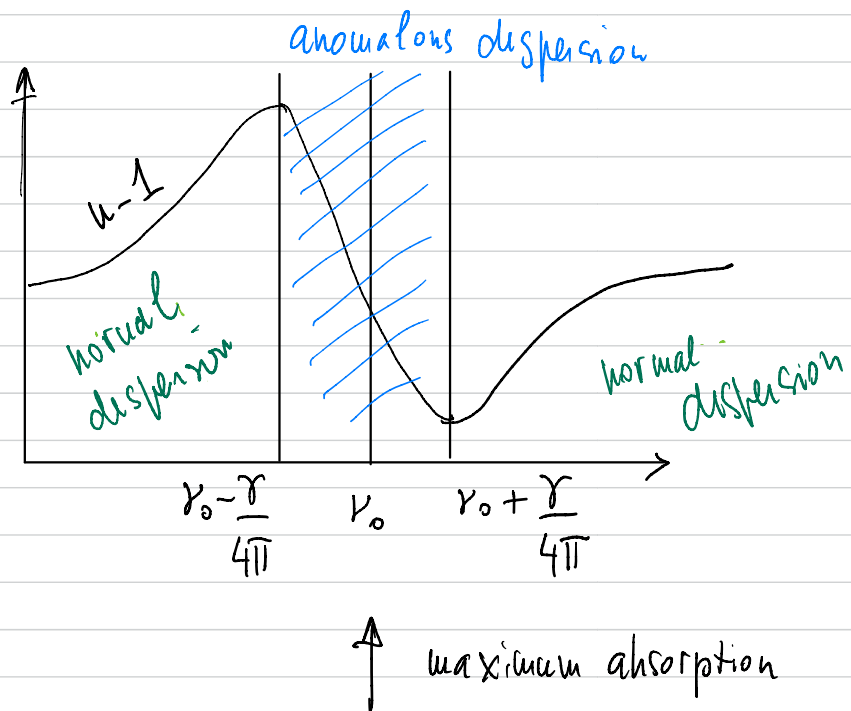 anomalous dispersion
n-1
normal dispersion
normal dispersion
ν₀ - γ/4π
ν₀
ν₀ + γ/4π
maximum absorption